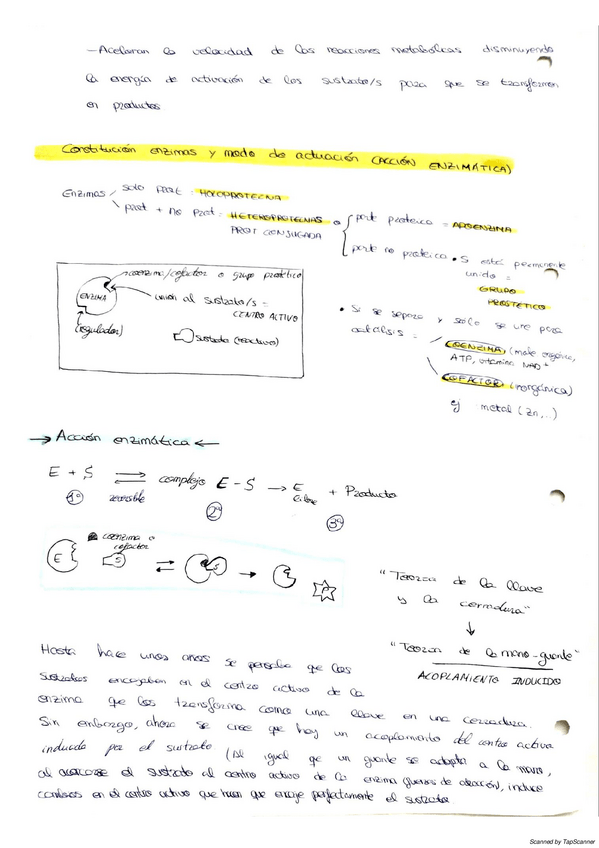 - Aceleran la velocidad de las reacciones metabólicas disminuyendo
la energía de activación de los sustrato/s para que se transformen
en productos
Constitución enzimas y modo de actuación (ACCIÓN ENZIMÁTICA)
Enzimas
solo prot: HOLOPROTEÍNA
prot + no prot: HETEROPROTEÍNAS o
PROT CONJUGADA
parte proteica = APOENZIMA
parte no proteica
• Si está permanente
unido =
GRUPO
PROSTÉTICO
• Si se separa y sólo se une para
catálisis =
COENZIMA (molc orgánica,
ATP, vitamina NAD+
COFACTOR (inorgánica)
ej metal (Zn,..)
coenzima/cofactor o grupo prostético
ENZIMA
unión al sustrato/s =
CENTRO ACTIVO
(regulador)
sustrato (reactivo)
→ Acción enzimática ←
E + S ⇌ complejo E - S → E libre + Producto
1º reversible 2º 3º
coenzima o
cofactor
E S ⇌ S → P
"Teoría de la llave
y la cerradura"
↓
"Teoría de la mano-guante"
ACOPLAMIENTO INDUCIDO
Hasta hace unos años se pensaba que los
sustratos encajaban en el centro activo de la
enzima que los transforma como una llave en una cerradura.
Sin embargo, ahora se cree que hay un acoplamiento del centro activo
inducido por el sustrato (Al igual qe un guante se adapta a la mano,
al acercarse el sustrato al centro activo de la enzima (fuerzas de atracción), induce
cambios en el centro activo que hacen que encaje perfectamente el sustrato
Scanned by TapScanner